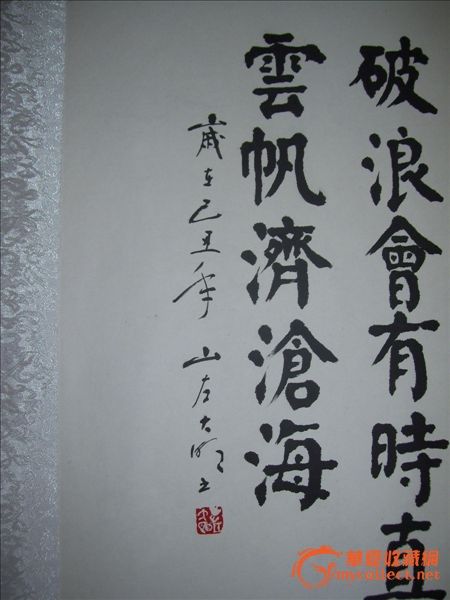 破浪會有時直
雲帆濟滄海
歲在己丑年 山左大明書
華夏收藏網
mycollect.net